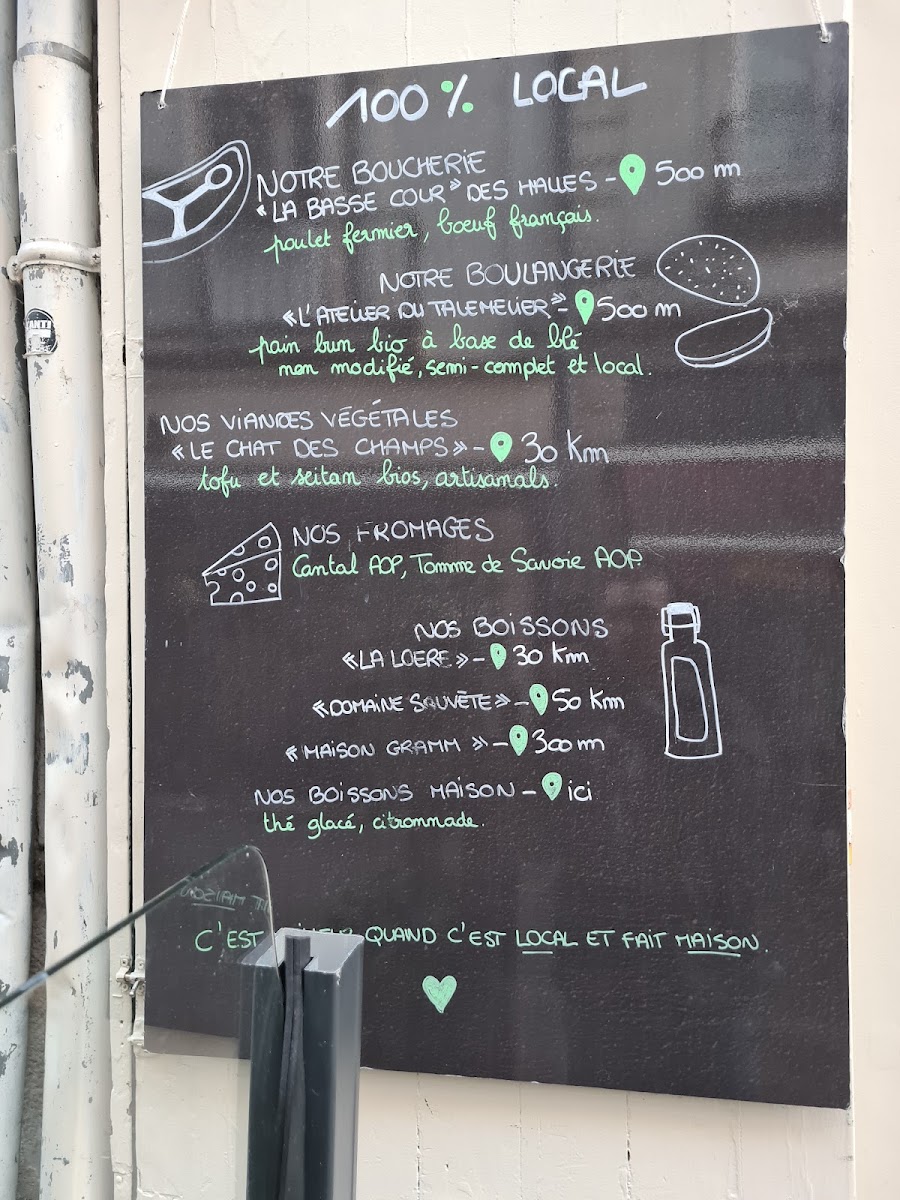 100% LOCAL
NOTRE BOUCHERIE
"LA BASSE COUR" DES HALLES - 500 m
poulet fermier, boeuf français.
NOTRE BOULANGERIE
"L'ATELIER DU TALEMELIER" - 500 m
pain bun bio à base de blé
non modifié, semi-complet et local.
NOS VIANDES VÉGÉTALES
"LE CHAT DES CHAMPS" - 30 Km
tofu et seitan bios, artisanals.
NOS FROMAGES
Cantal AOP, Tomme de Savoie AOP.
NOS BOISSONS
"LA LOERE" - 30 Km
"DOMAINE SAUVÈTE" - 50 Km
"MAISON GRAMM" - 300 m
NOS BOISSONS MAISON - ici
thé glacé, citronnade.
C'EST QUAND C'EST LOCAL ET FAIT MAISON.
ANTI